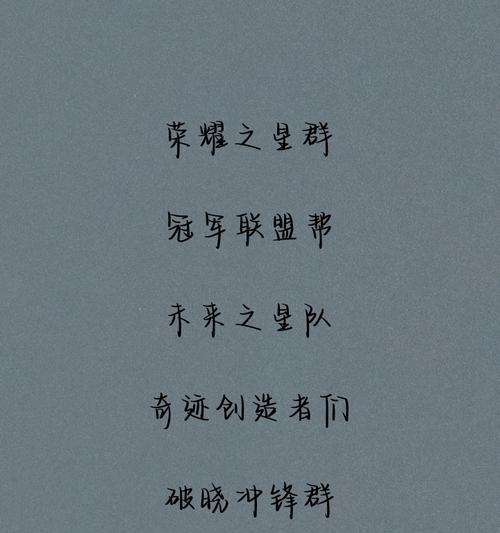 荣耀之星群
冠军联盟帮
未来之星队
奇迹创造者们
破晓冲锋群